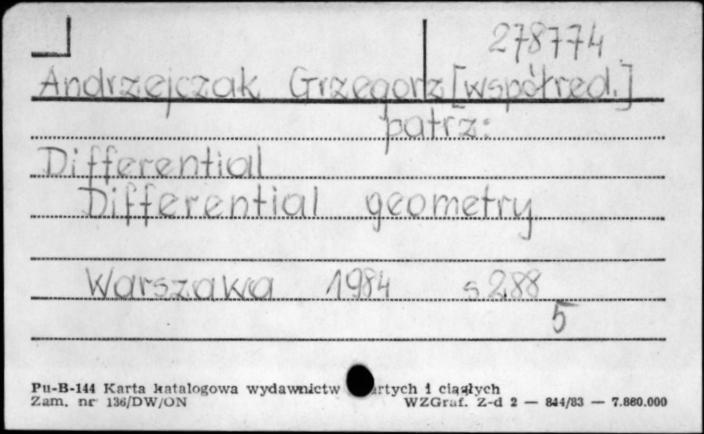 278774
Andrzejczak Grzegorz [współred.]
patrz:
Differential
Differential geometry
Warszawa 1984 s 288
5
Pu-B-144 Karta katalogowa wydawnictw artych i ciągłych
Zam. nr 136/DW/ON WZGraf. Z-d 2 — 844/83 — 7.860.000